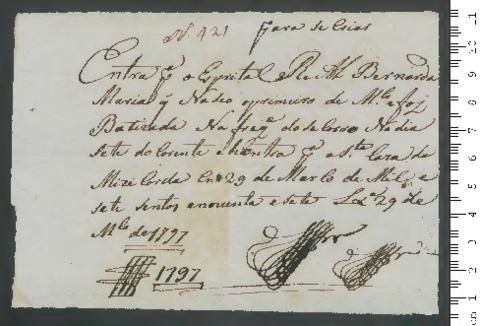 N. 421 para se Criar
Entra pª o Espital Real Bernarda
Maria q Naseo oprimeiro de Mço e foj
Batizada Na freg.ª do so Corro Na dia
sete do Corente e hé entra pª a Sta Caza da
Mizi Cordia En 29 de Marso de Mil e
sete sentos e nouenta e sete Lxª 29 de
Mço de 1797
1797